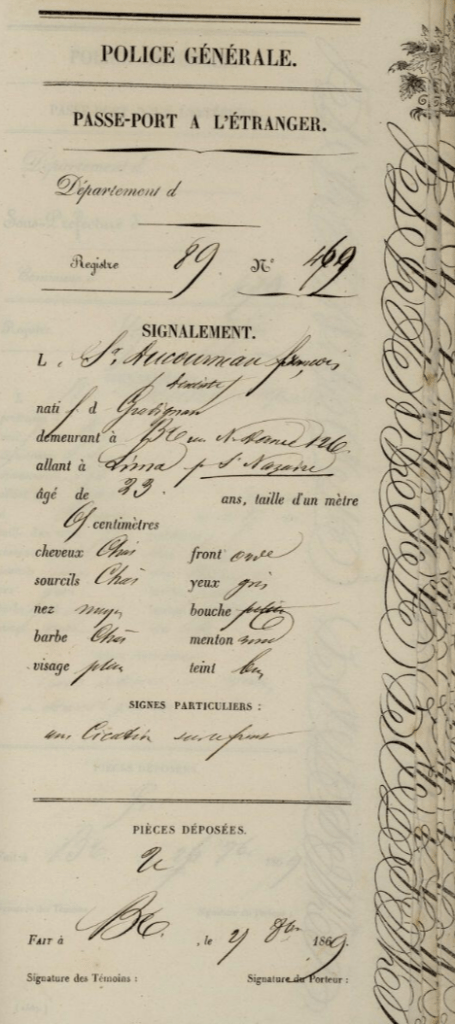 POLICE GÉNÉRALE.
PASSE-PORT A L'ÉTRANGER.
Département d
Registre 89 N° 469
SIGNALEMENT.
L e Sr. Ducourneau françois
natif d Gradignan
demeurant à Bx rue 126
allant à Lima p St Nazaire
âgé de 23 ans, taille d'un mètre
69 centimètres
cheveux Chât front
sourcils Chât yeux gris
nez moyen bouche petite
barbe Chât menton rond
visage plein teint
SIGNES PARTICULIERS :
une Cicatrice sur le front
PIÈCES DÉPOSÉES.
FAIT à Bx. , le 8bre 1869.
Signature des Témoins : Signature du Porteur :